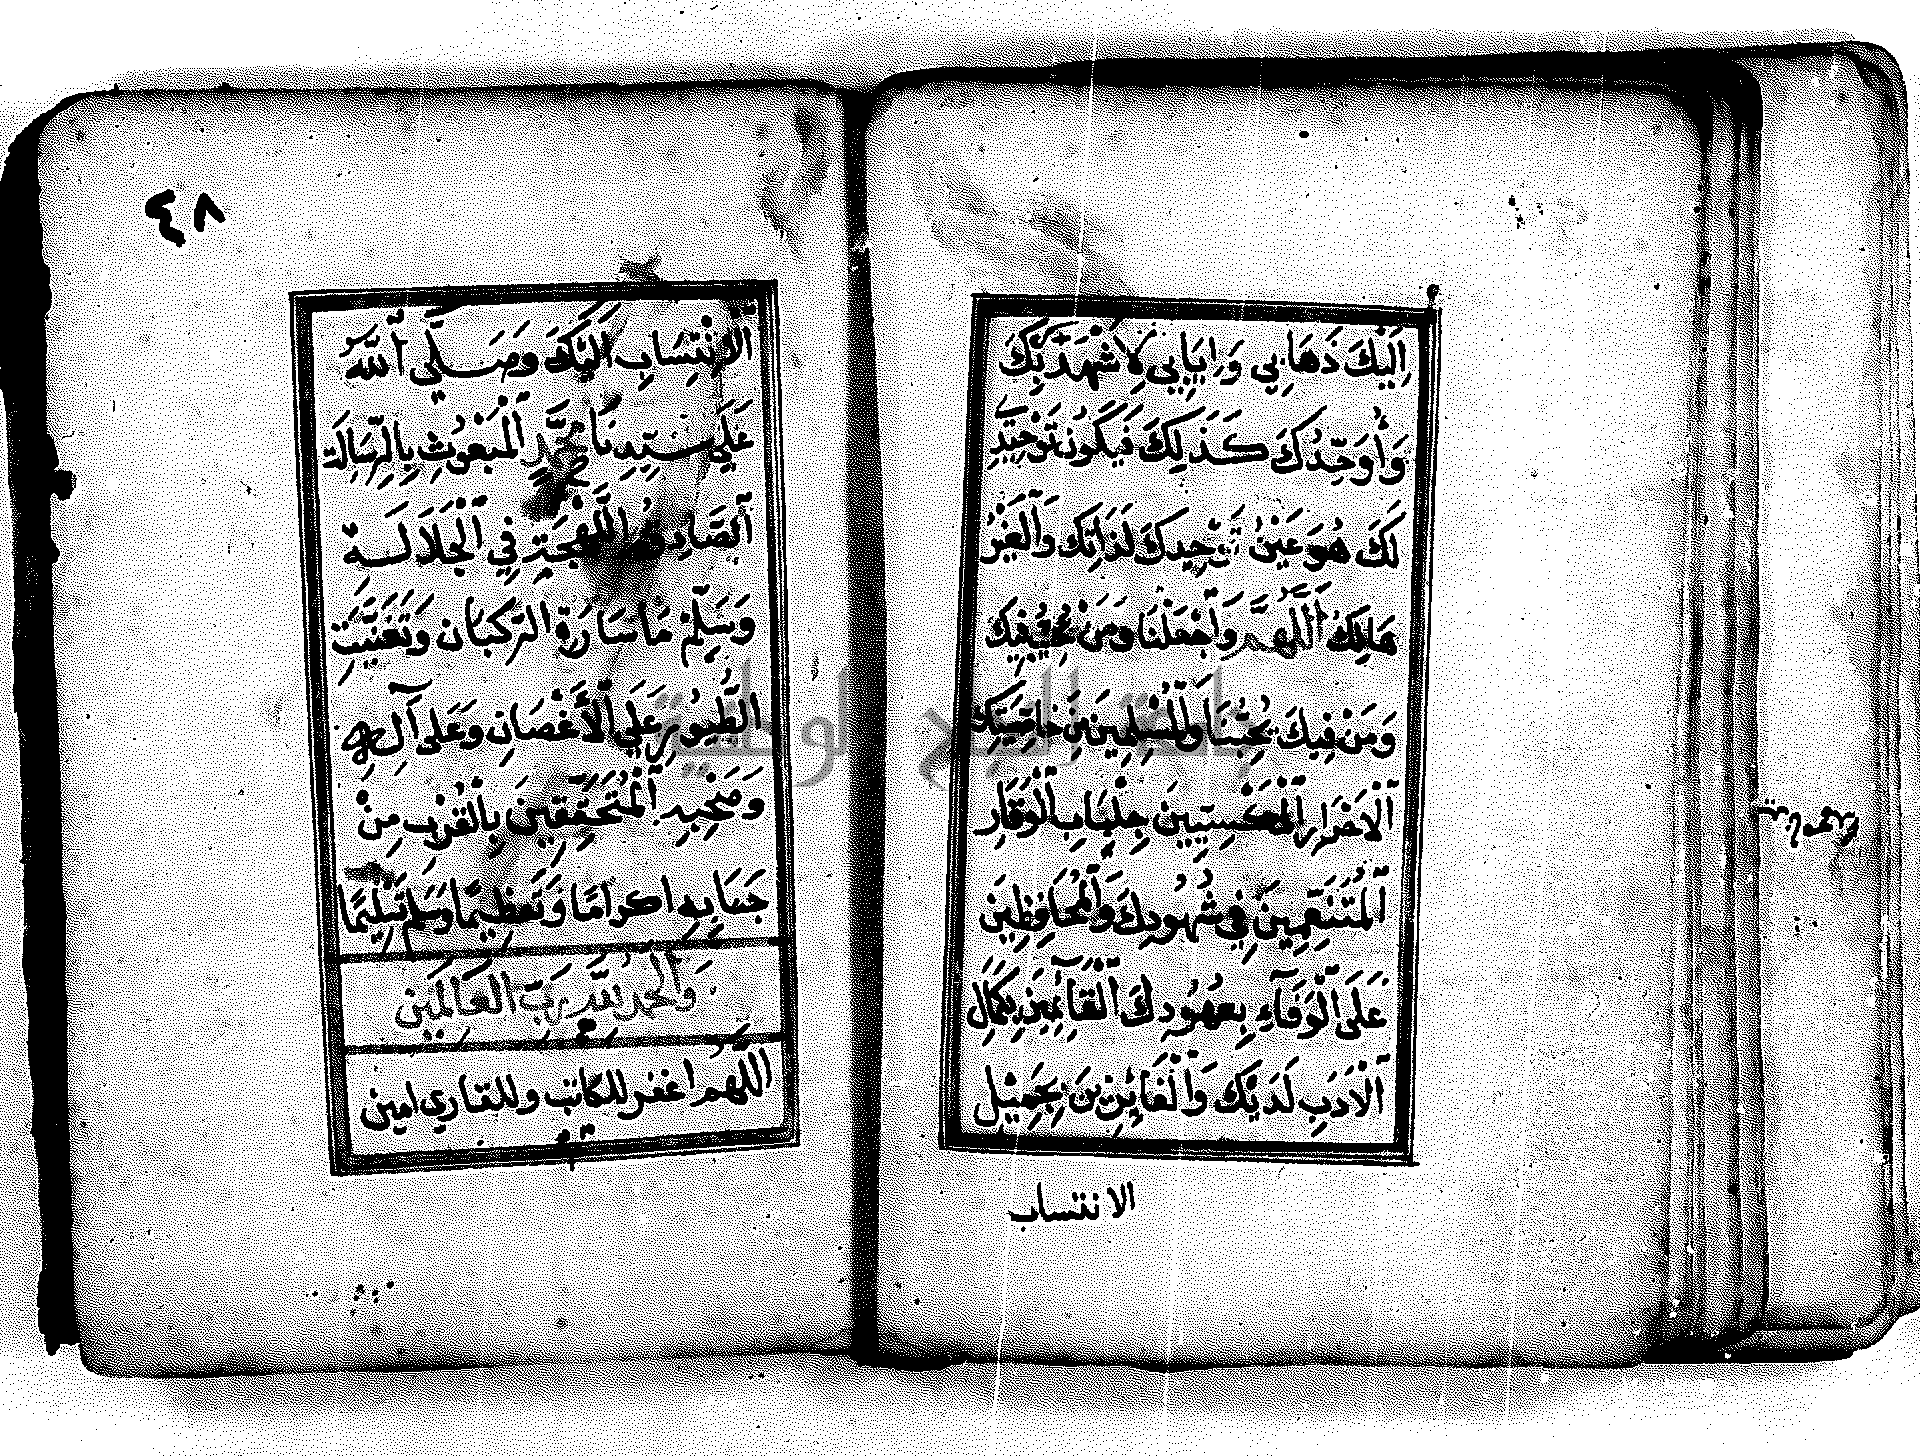 اِلَيْكَ ذَهَابِي وَاِيَابِي لَاَشْهَدَ بِكَ
وَاُوَحِّدُكَ كَذٰلِكَ فَيَكُونَ تَوْحِيْدِي
لَكَ هُوَ عَيْنُ تَوْحِيدِكَ لِذَاتِكَ وَالْغَيْرُ
هَالِكٌ اَللّٰهُمَّ وَاجْعَلْنَا وَمَنْ
وَمَنْ فِيكَ يُحِبُّنَا وَالْمُسْلِمِينَ مِنْ خَاصَّتِكَ
الْاَحْرَارِ الْمُكْتَسِيِينَ جِلْبَابَ الْوَقَارِ
الْمُتَنَعِّمِينَ فِي شُهُودِكَ وَالْمُحَافِظِينَ
عَلَى الْوَفَاءِ بِعُهُودِكَ الْقَائِمِينَ بِكَمَالِ
الْاَدَبِ لَدَيْكَ وَالْفَائِزِينَ بِجَمِيْلِ
الانتساب
٤٨
الْاِنْتِسَابِ اِلَيْكَ وَصَلَّى اللّٰهُ
عَلَى سَيِّدِنَا مُحَمَّدٍ الْمَبْعُوْثِ بِالرِّسَالَة
الصَّادِقِ اللَّهْجَةِ فِي الْجَلَالَةِ
وَسَلِّمْ مَا سَارَةِ الرُّكْبَان وَتَغَنَّتِ
الطُّيُورُ عَلَى الْاَغْصَانِ وَعَلَى آلِهِ
وَصَحْبِهِ الْمُتَحَقِّقِينَ بِالْقُرْبِ مِنْ
جَنَابِهِ اِكْرَامًا وَتَعْظِيْمًا وَسَلِّمْ تَسْلِيْمًا
وَالْحَمْدُ لِلّٰهِ رَبِّ الْعَالَمِينَ
اللّٰهُمَّ اغفر للكاتب وللقاري امين